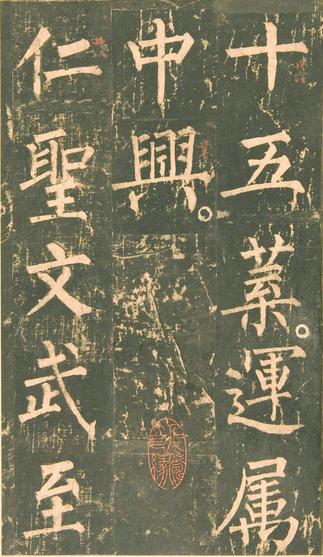 十五葉運属
中興
仁聖文武至